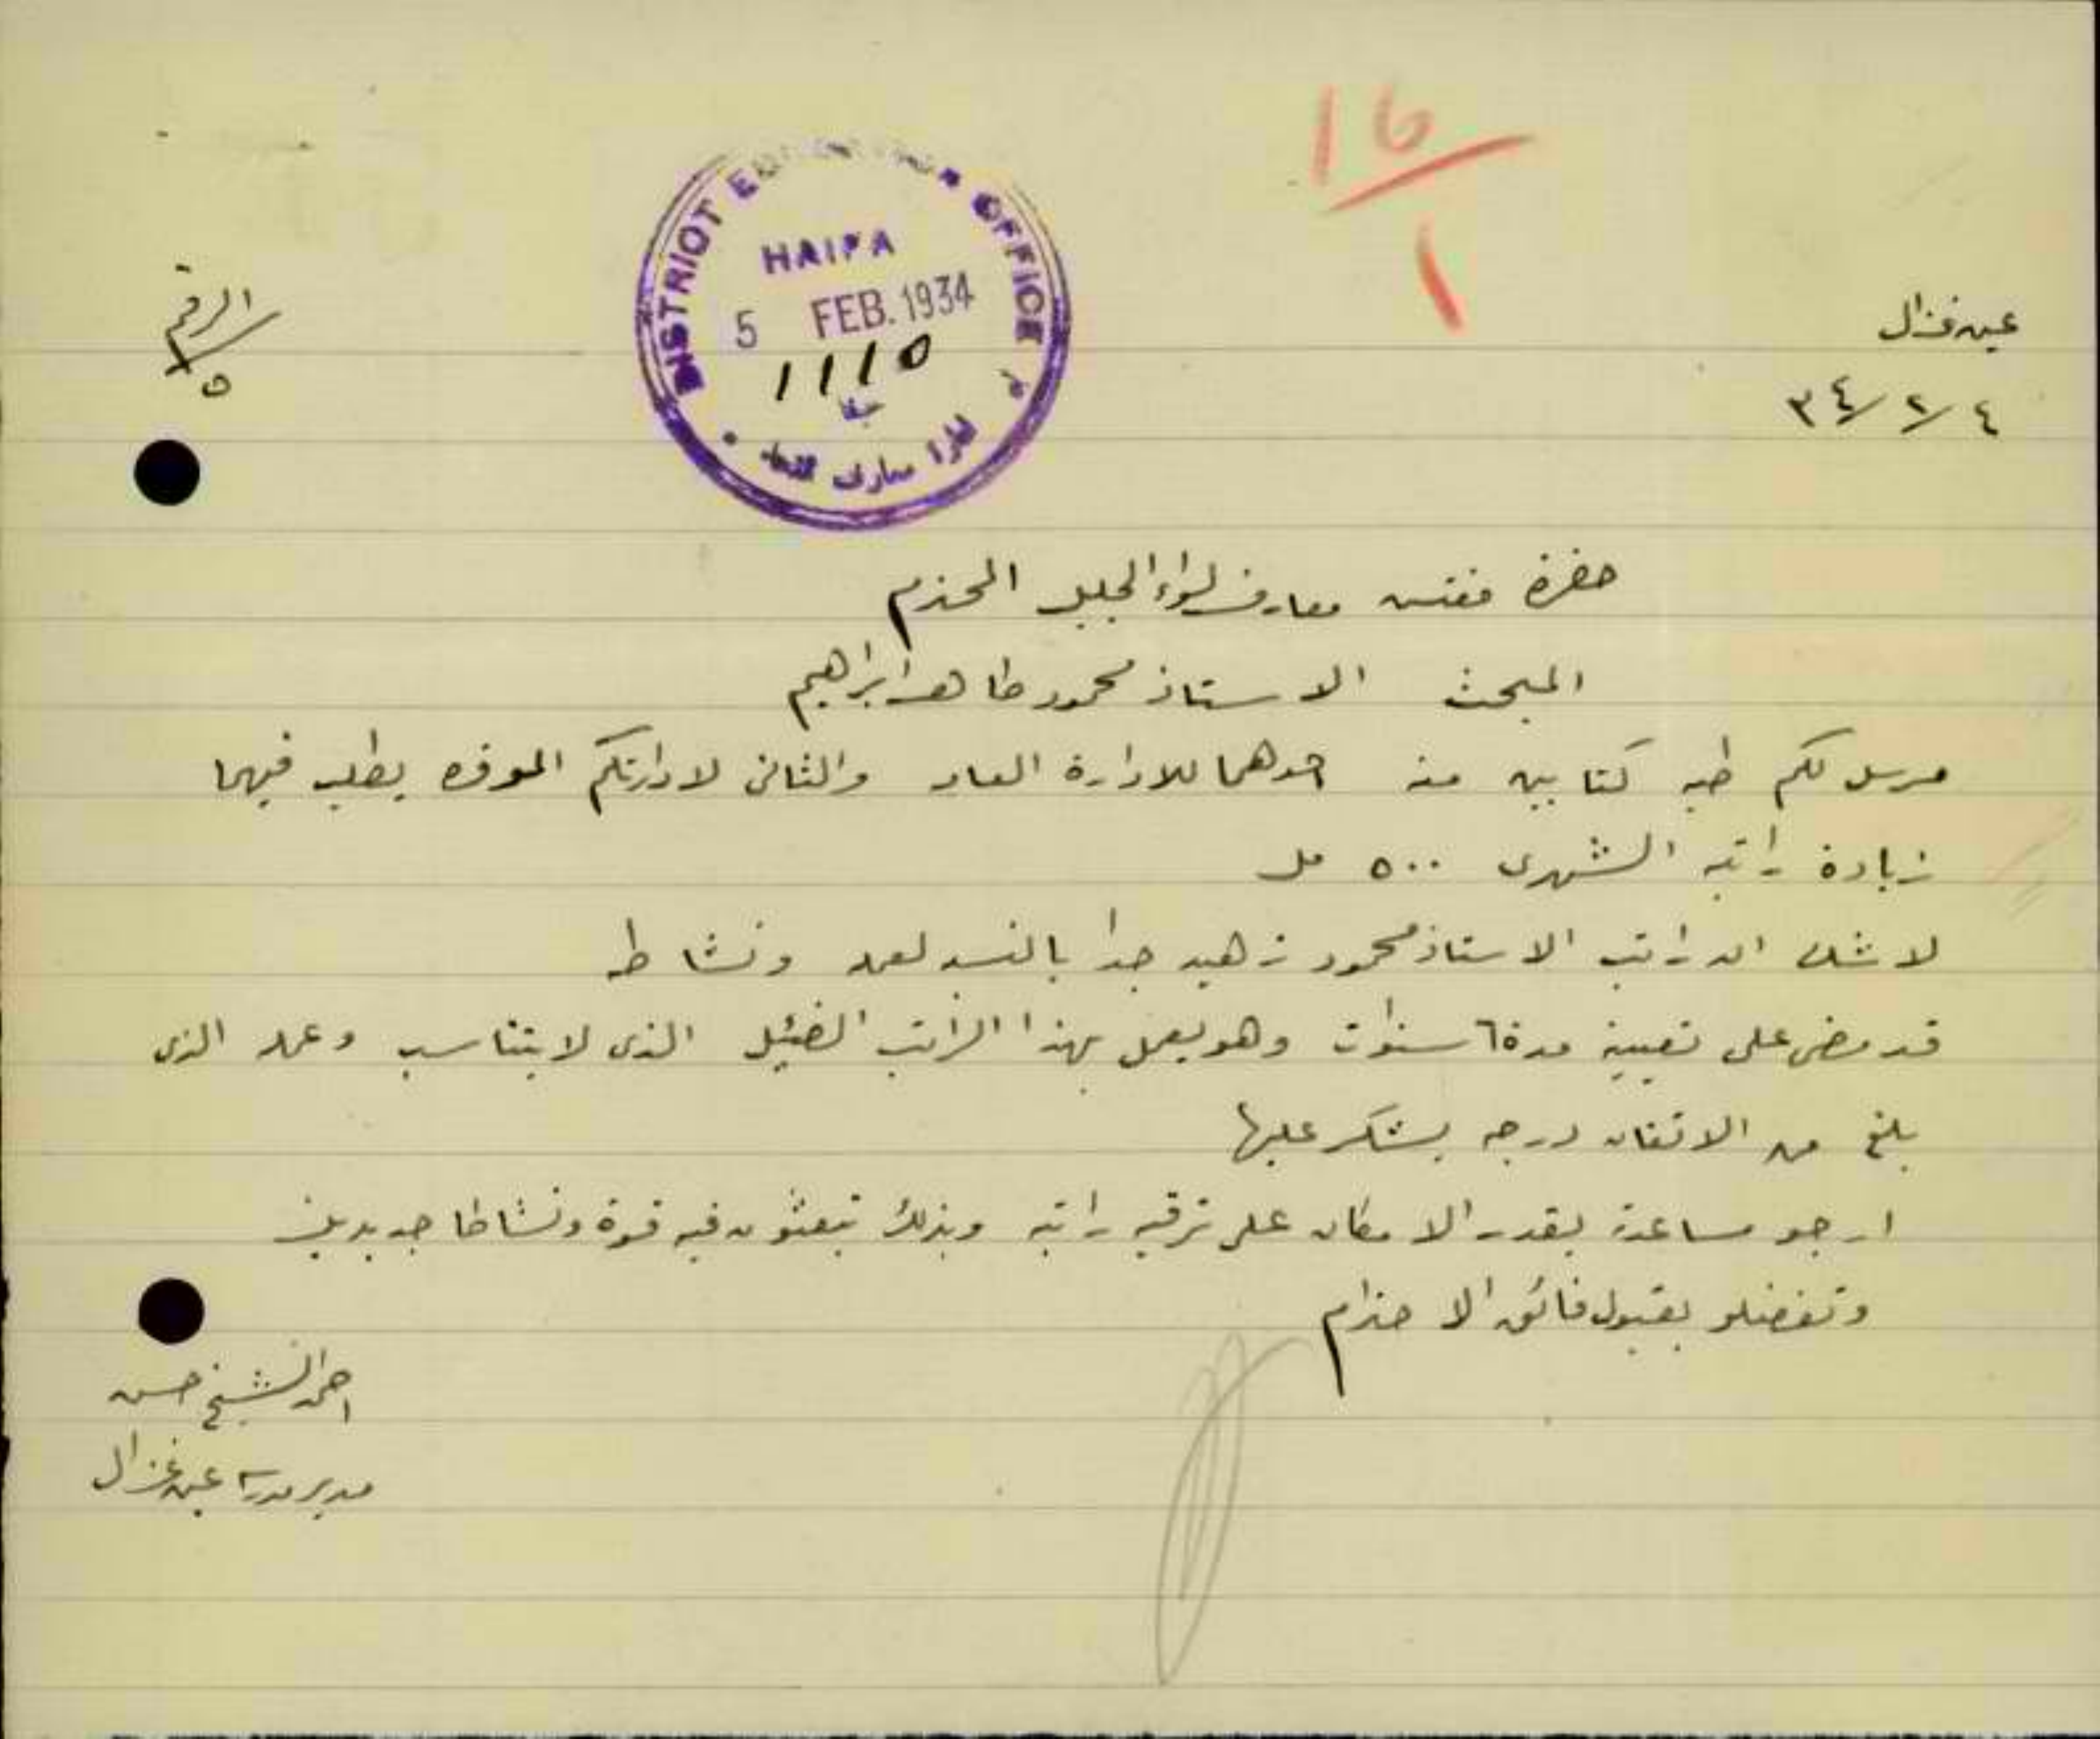 16
1
عين غزال
٤/٢/٣٤
الرقم
٥
DISTRICT EDUCATION OFFICE
HAIFA
5 FEB. 1934
1110
حيفا
معارف
حضرة مفتش معارف لواء الجليل المحترم
المبحث الاستاذ محمود طاهر ابراهيم
مرسل لكم طيه كتابين منه احدهما للادارة العامه والثاني لادارتكم الموقره يطلب فيهما
زيادة راتبه الشهري ٥٠٠ مل
لا شك ان راتب الاستاذ محمود زهيد جدا بالنسبه لعمله ونشاطه
قد مضى على تعيينه مدة ٦ سنوات وهو يعمل بهذا الراتب الضئيل الذي لا يتناسب وعمله الذي
بلغ من الاتقان درجه يشكر عليها
ارجو مساعدته بقدر الامكان على ترقيه راتبه وبذلك تبعثون فيه قوة ونشاطا جديدين
وتفضلو بقبول فائق الاحترام
احمد الشيخ حسن
مدير مدرسة عين غزال